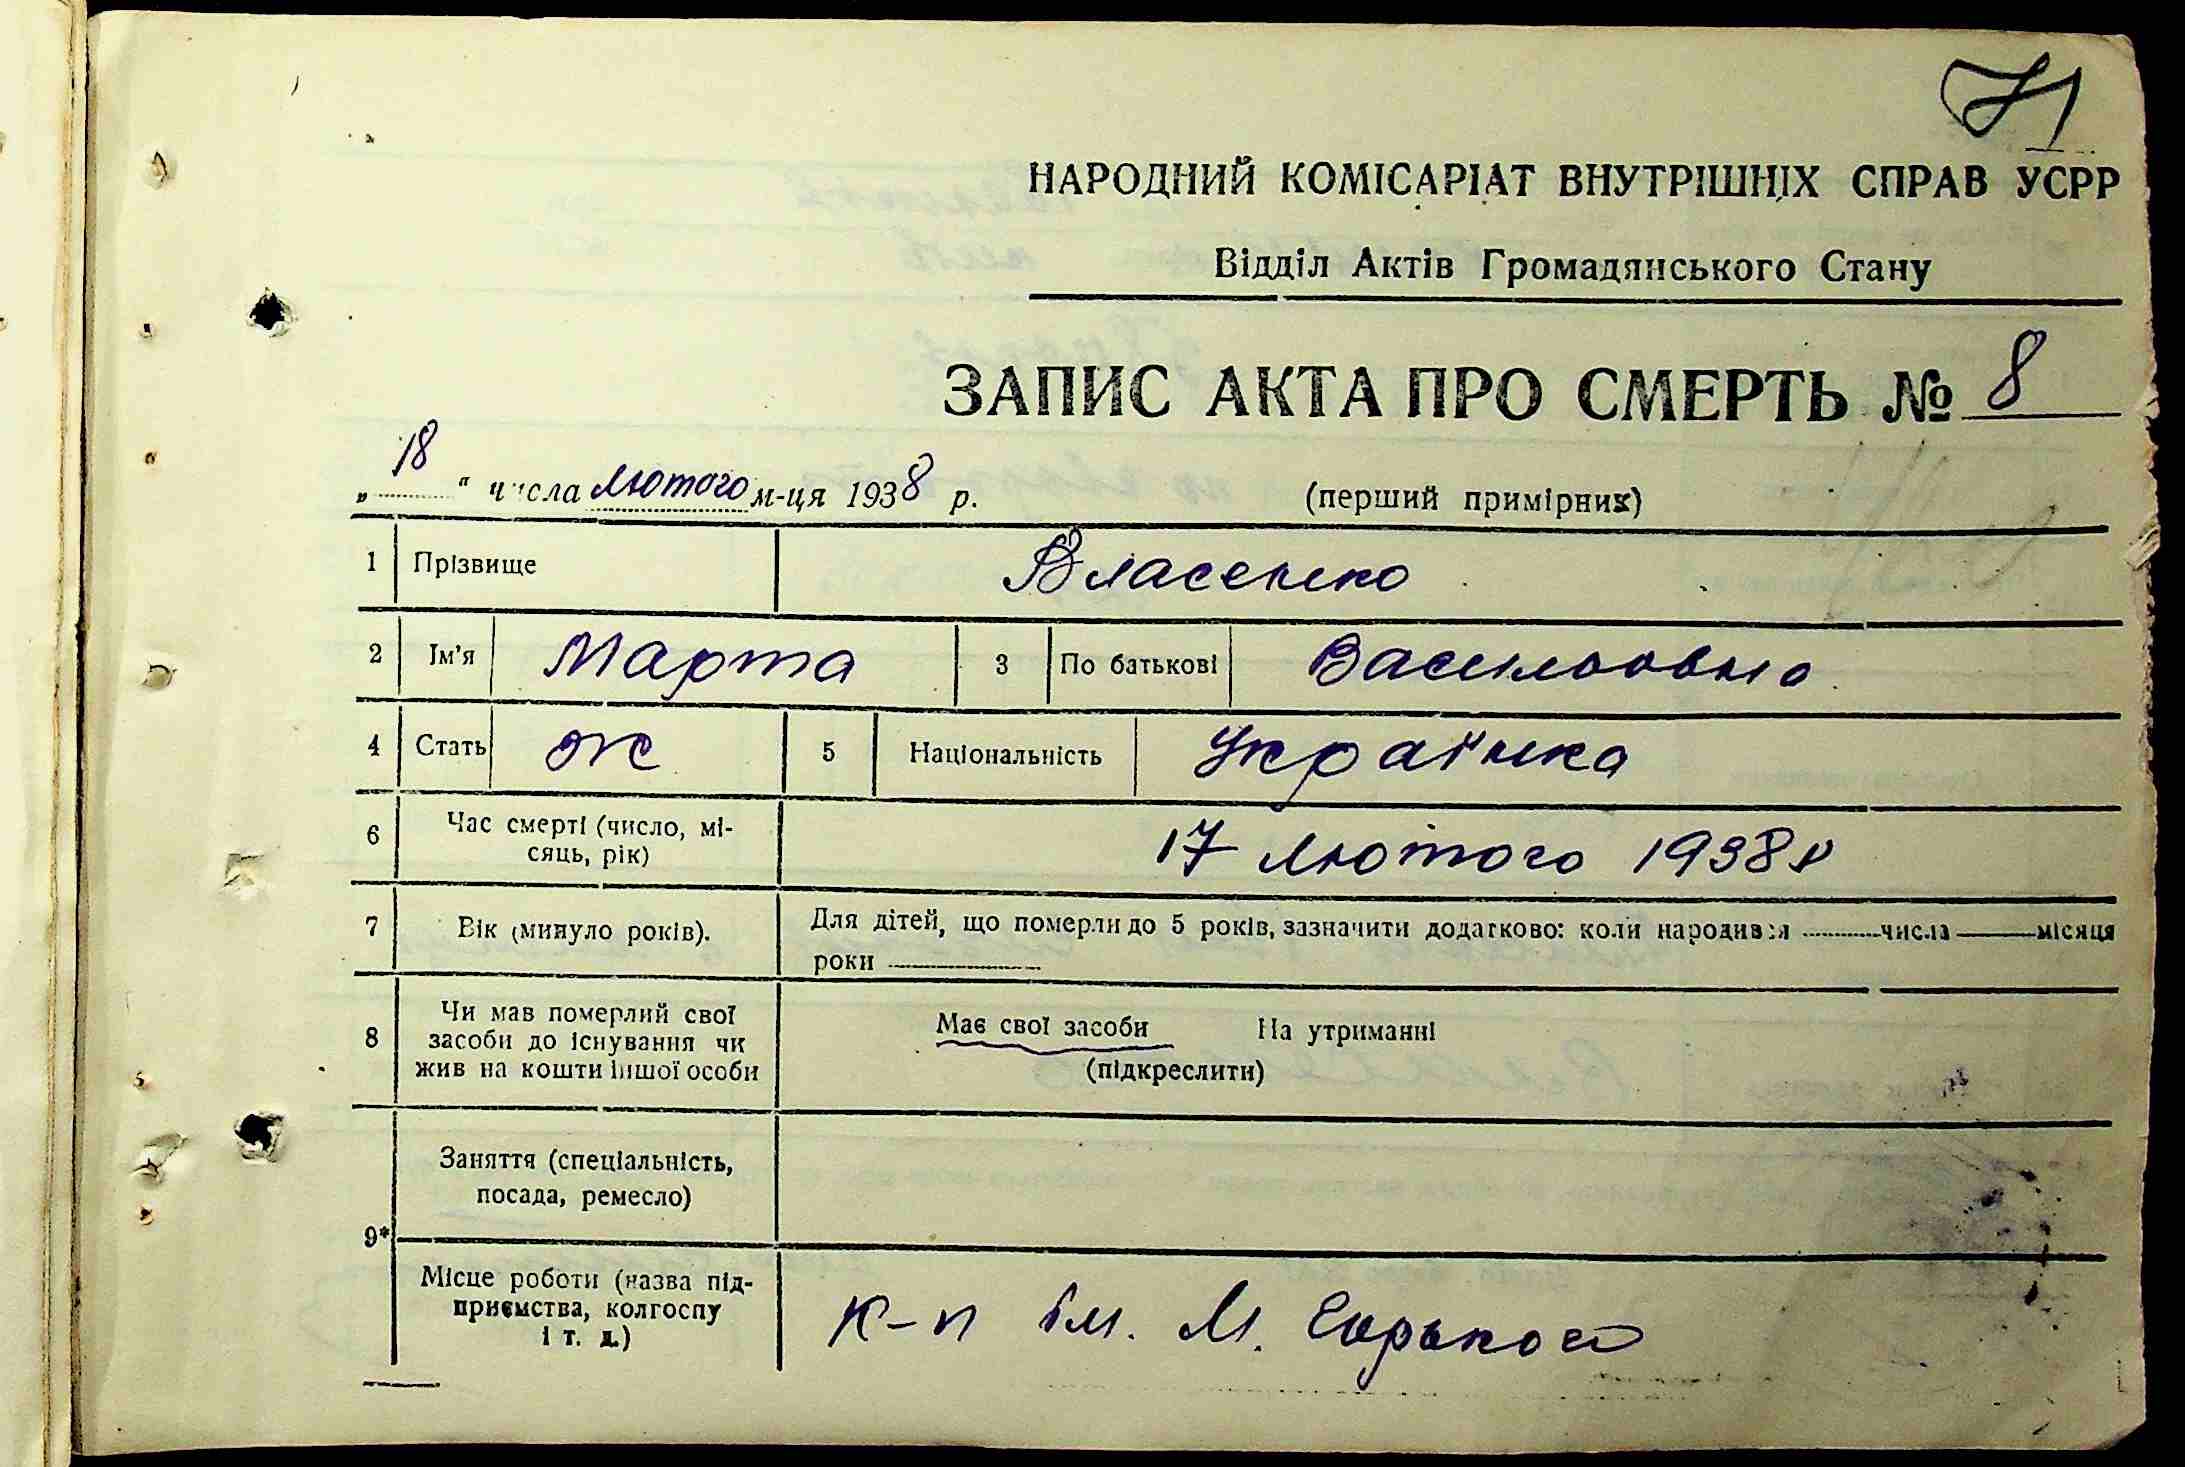 71
НАРОДНИЙ КОМІСАРІАТ ВНУТРІШНІХ СПРАВ УСРР
Відділ Актів Громадянського Стану
ЗАПИС АКТА ПРО СМЕРТЬ № 8
„18“ числа лютого м-ця 1938 р. (перший примірник)
1 Прізвище Власенко
2 Ім'я Марта 3 По батькові Василовна
4 Стать ж 5 Національність Українка
6 Час смерті (число, мі-
сяць, рік) 17 лютого 1938 р
7 Вік (минуло років). Для дітей, що померли до 5 років, зазначити додатково: коли народився ——— числа ——— місяця
роки ———
8 Чи мав померлий свої
засоби до існування чи
жив на кошти іншої особи
Має свої засоби На утриманні
(підкреслити)
9*
Заняття (спеціальність,
посада, ремесло)
Місце роботи (назва під-
приємства, колгоспу
і т. д.)
К-п ім. М. Горького